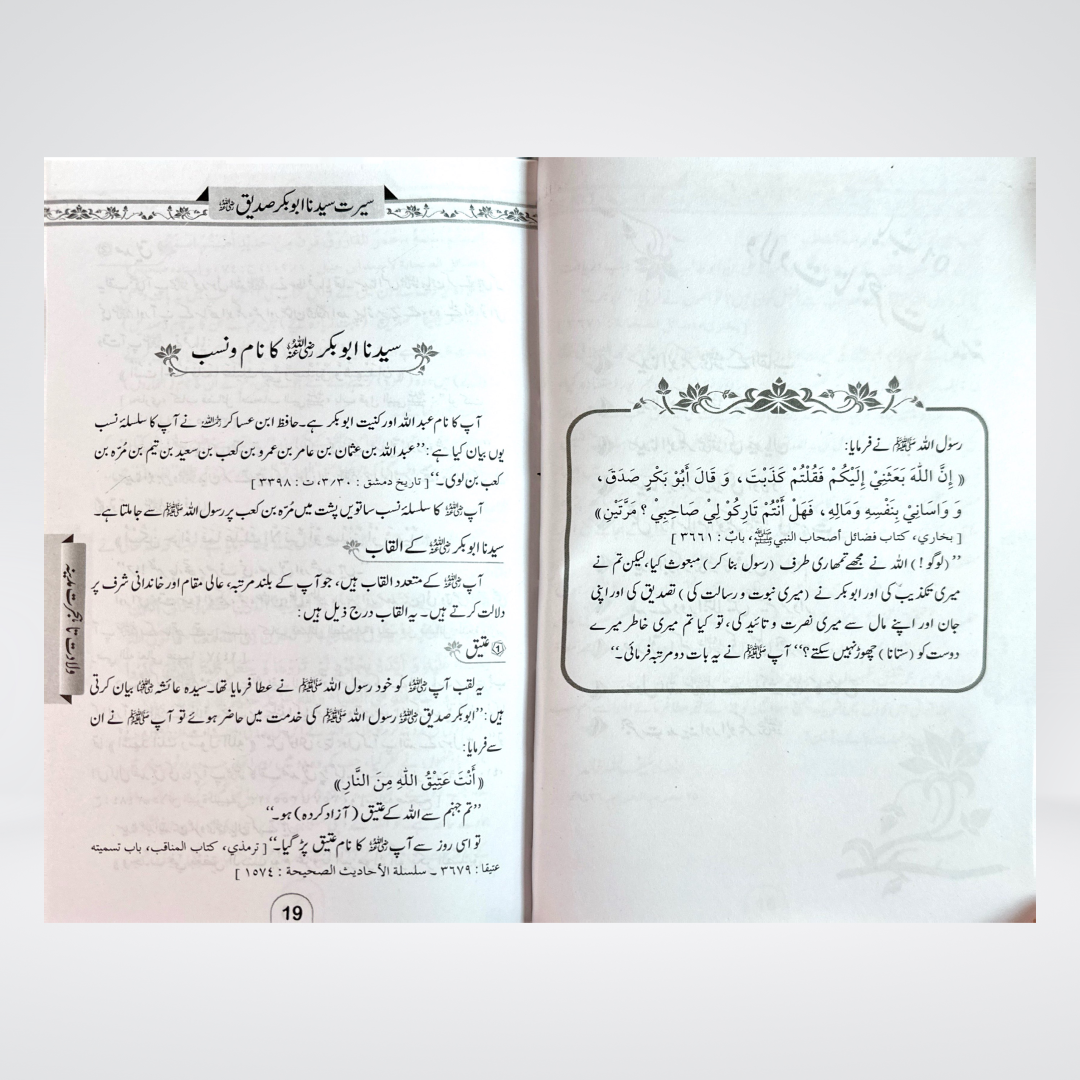 رسول اللہ ﷺ نے فرمایا:
« إِنَّ اللّٰهَ بَعَثَنِيْ إِلَيْكُمْ فَقُلْتُمْ كَذَبْتَ ، وَ قَالَ أَبُوْ بَكْرٍ صَدَقَ ،
وَ وَاسَانِيْ بِنَفْسِهِ وَمَالِهِ ، فَهَلْ أَنْتُمْ تَارِكُوْ لِيْ صَاحِبِيْ ؟ مَرَّتَيْنِ »
[ بخاري، كتاب فضائل أصحاب النبي ﷺ، باب : ٣٦٦١ ]
”(لوگو!) اللہ نے مجھے تمھاری طرف (رسول بنا کر) مبعوث کیا،لیکن تم نے
میری تکذیب کی اور ابوبکر نے (میری نبوت و رسالت کی) تصدیق کی اور اپنی
جان اور اپنے مال سے میری نصرت و تائید کی، تو کیا تم میری خاطر میرے
دوست کو (ستانا) چھوڑ نہیں سکتے؟“ آپ ﷺ نے یہ بات دو مرتبہ فرمائی۔“
سیرت سیدنا ابوبکر صدیق رضی اللہ عنہ
سیدنا ابوبکر رضی اللہ عنہ کا نام و نسب
آپ کا نام عبداللہ اور کنیت ابوبکر ہے۔ حافظ ابن عساکر رحمہ اللہ نے آپ کا سلسلۂ نسب
یوں بیان کیا ہے: ”عبداللہ بن عثمان بن عامر بن عمرو بن کعب بن سعید بن تیم بن مُرّہ بن
کعب بن لوی۔“ [ تاريخ دمشق : ٣/٣٠، ت : ٣٣٩٨ ]
آپ رضی اللہ عنہ کا سلسلۂ نسب ساتویں پشت میں مُرّہ بن کعب پر رسول اللہ ﷺ سے جا ملتا ہے۔
سیدنا ابوبکر رضی اللہ عنہ کے القاب
آپ رضی اللہ عنہ کے متعدد القاب ہیں، جو آپ کے بلند مرتبہ، عالی مقام اور خاندانی شرف پر
دلالت کرتے ہیں۔ یہ القاب درج ذیل ہیں:
① عتیق
یہ لقب آپ رضی اللہ عنہ کو خود رسول اللہ ﷺ نے عطا فرمایا تھا۔ سیدہ عائشہ رضی اللہ عنہا بیان کرتی
ہیں: ”ابوبکر صدیق رضی اللہ عنہ رسول اللہ ﷺ کی خدمت میں حاضر ہوئے تو آپ ﷺ نے ان
سے فرمایا:
« أَنْتَ عَتِيْقُ اللّٰهِ مِنَ النَّارِ »
”تم جہنم سے اللہ کے عتیق (آزاد کردہ) ہو۔“
تو اسی روز سے آپ رضی اللہ عنہ کا نام عتیق پڑ گیا۔“ [ ترمذي، كتاب المناقب، باب تسميته
عتيقا : ٣٦٧٩ ـ سلسلة الأحاديث الصحيحة : ١٥٧٤ ]
ولادت تا ہجرت مدینہ
19